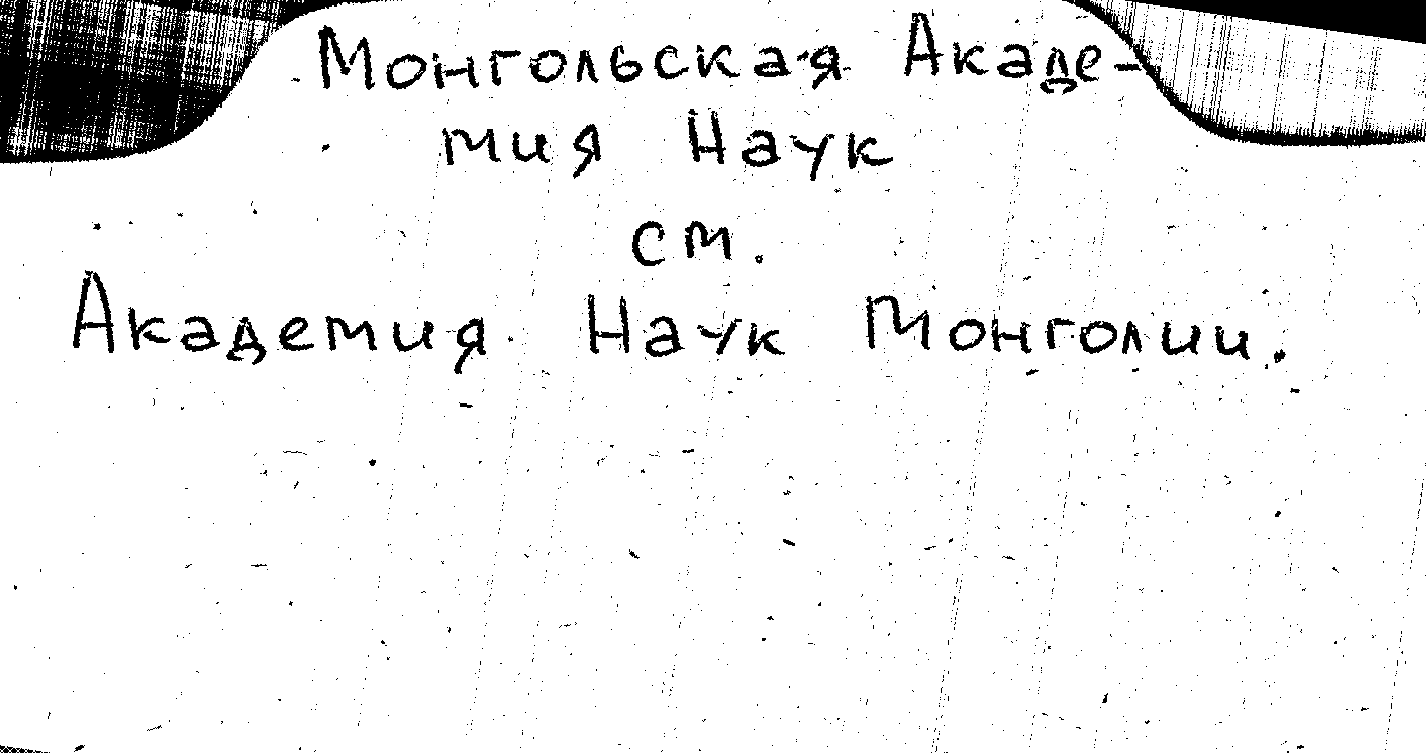 Монгольская Акаде-
мия Наук
см.
Академия Наук Монголии.